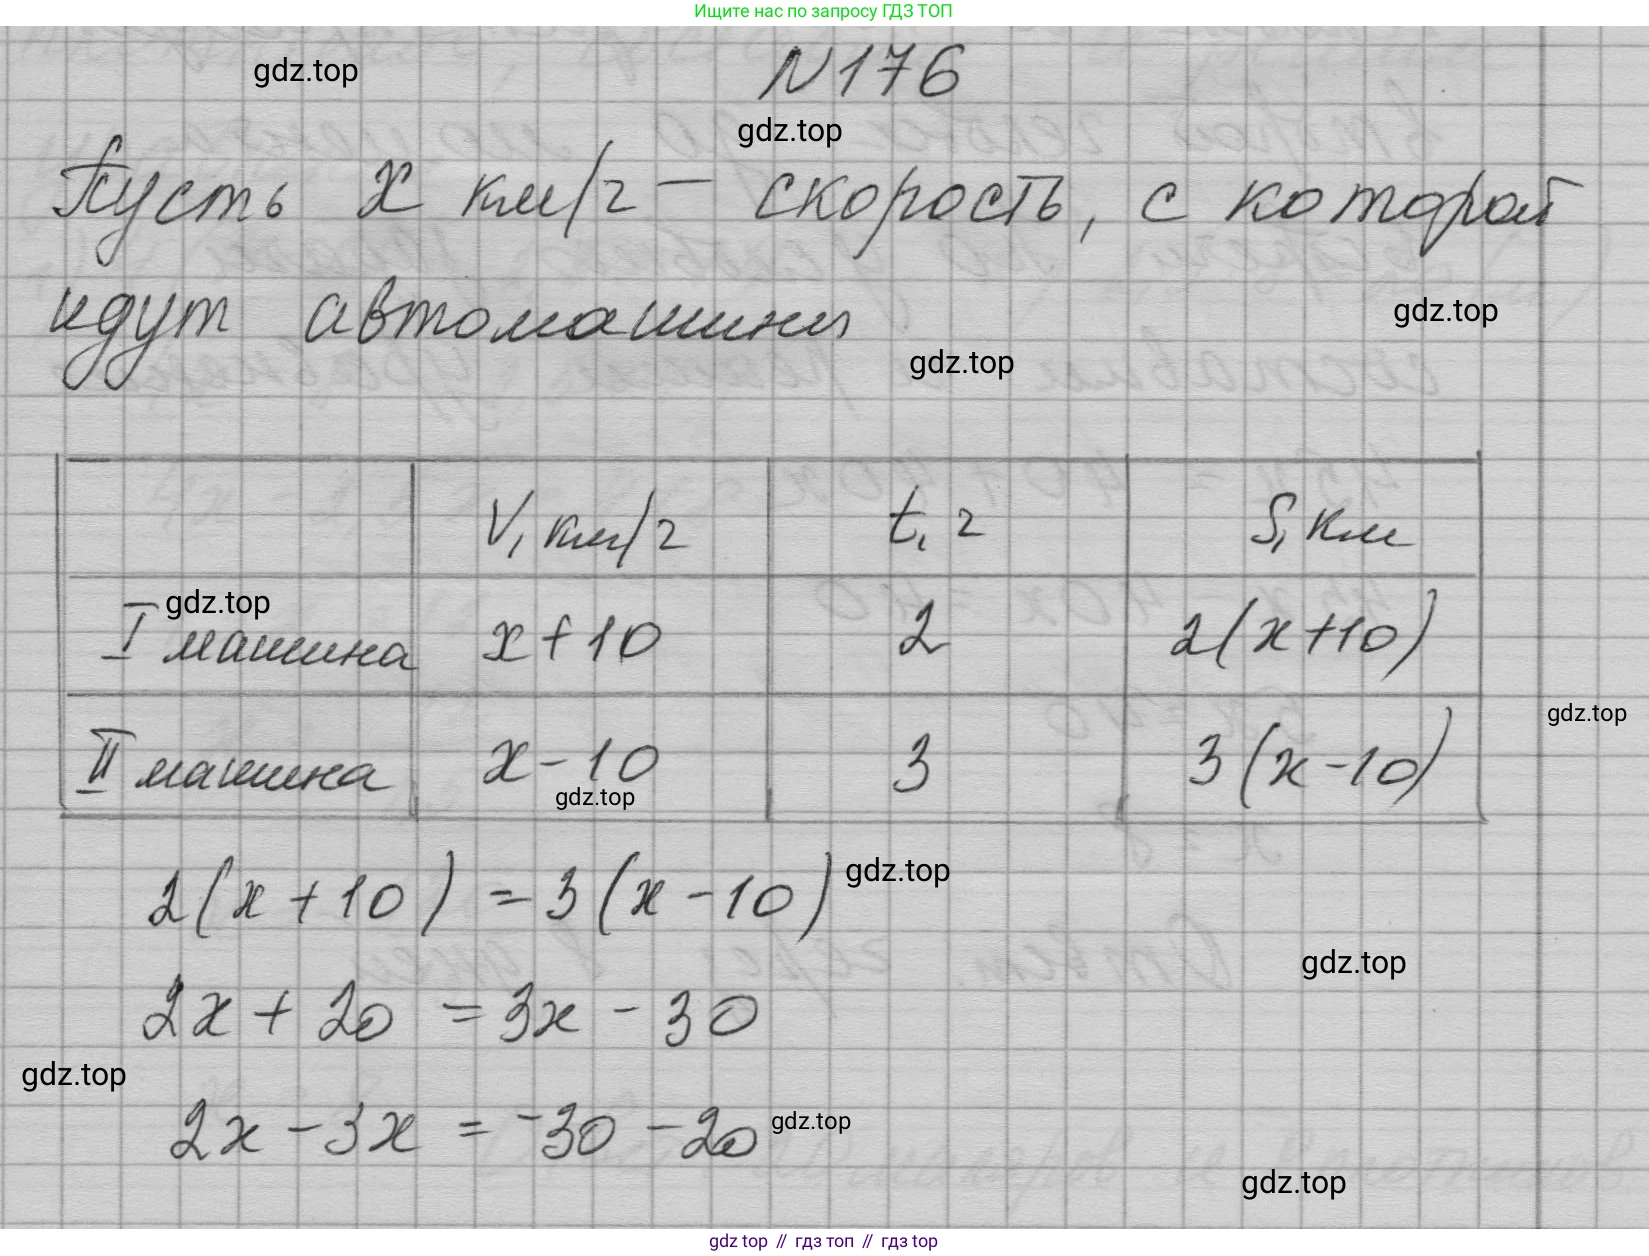 Ищите нас по запросу ГДЗ ТОП
gdz.top
N 176
gdz.top
Пусть x км/г — скорость, с которой
идут автомашины
gdz.top
gdz.top
V, км/г t, г S, км
gdz.top
I машина x+10 2 2(x+10)
gdz.top
II машина x-10 3 3(x-10)
gdz.top
2(x+10) = 3(x-10)
gdz.top
gdz.top
2x + 20 = 3x - 30
gdz.top
2x - 3x = -30 - 20
gdz.top
gdz.top
gdz top // гдз топ // гдз top